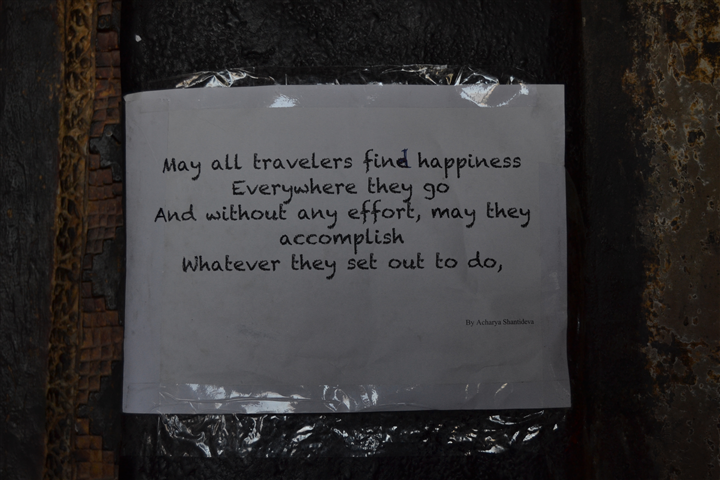 May all travelers find happiness
Everywhere they go
And without any effort, may they
accomplish
Whatever they set out to do,
By Acharya Shantideva